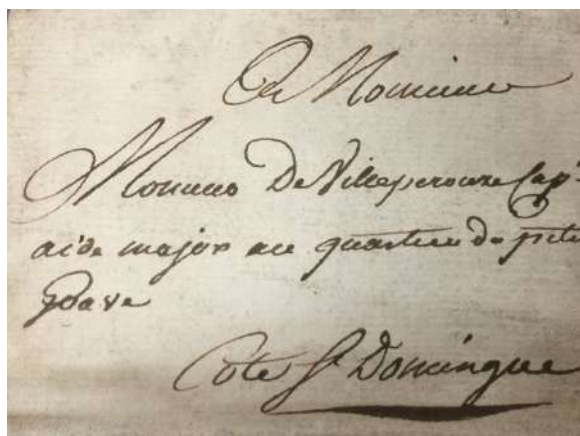 A Monsieur
Monsieur De Villeperouze Cap.ne
aide major au quartier du petit
Goave
Cote St Domingue